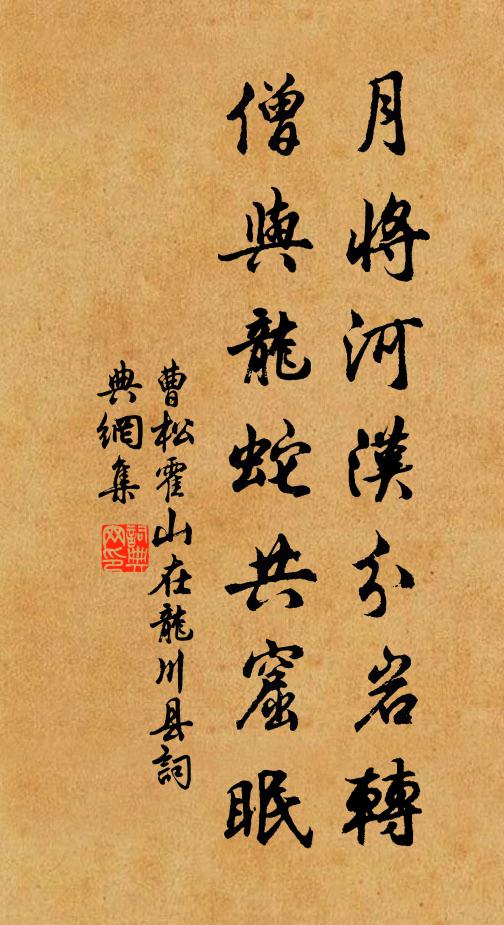 月將河漢分岩轉
僧與龍蛇共窟眠
曹松霍山在龍川县詞
典網集
詞典
网印